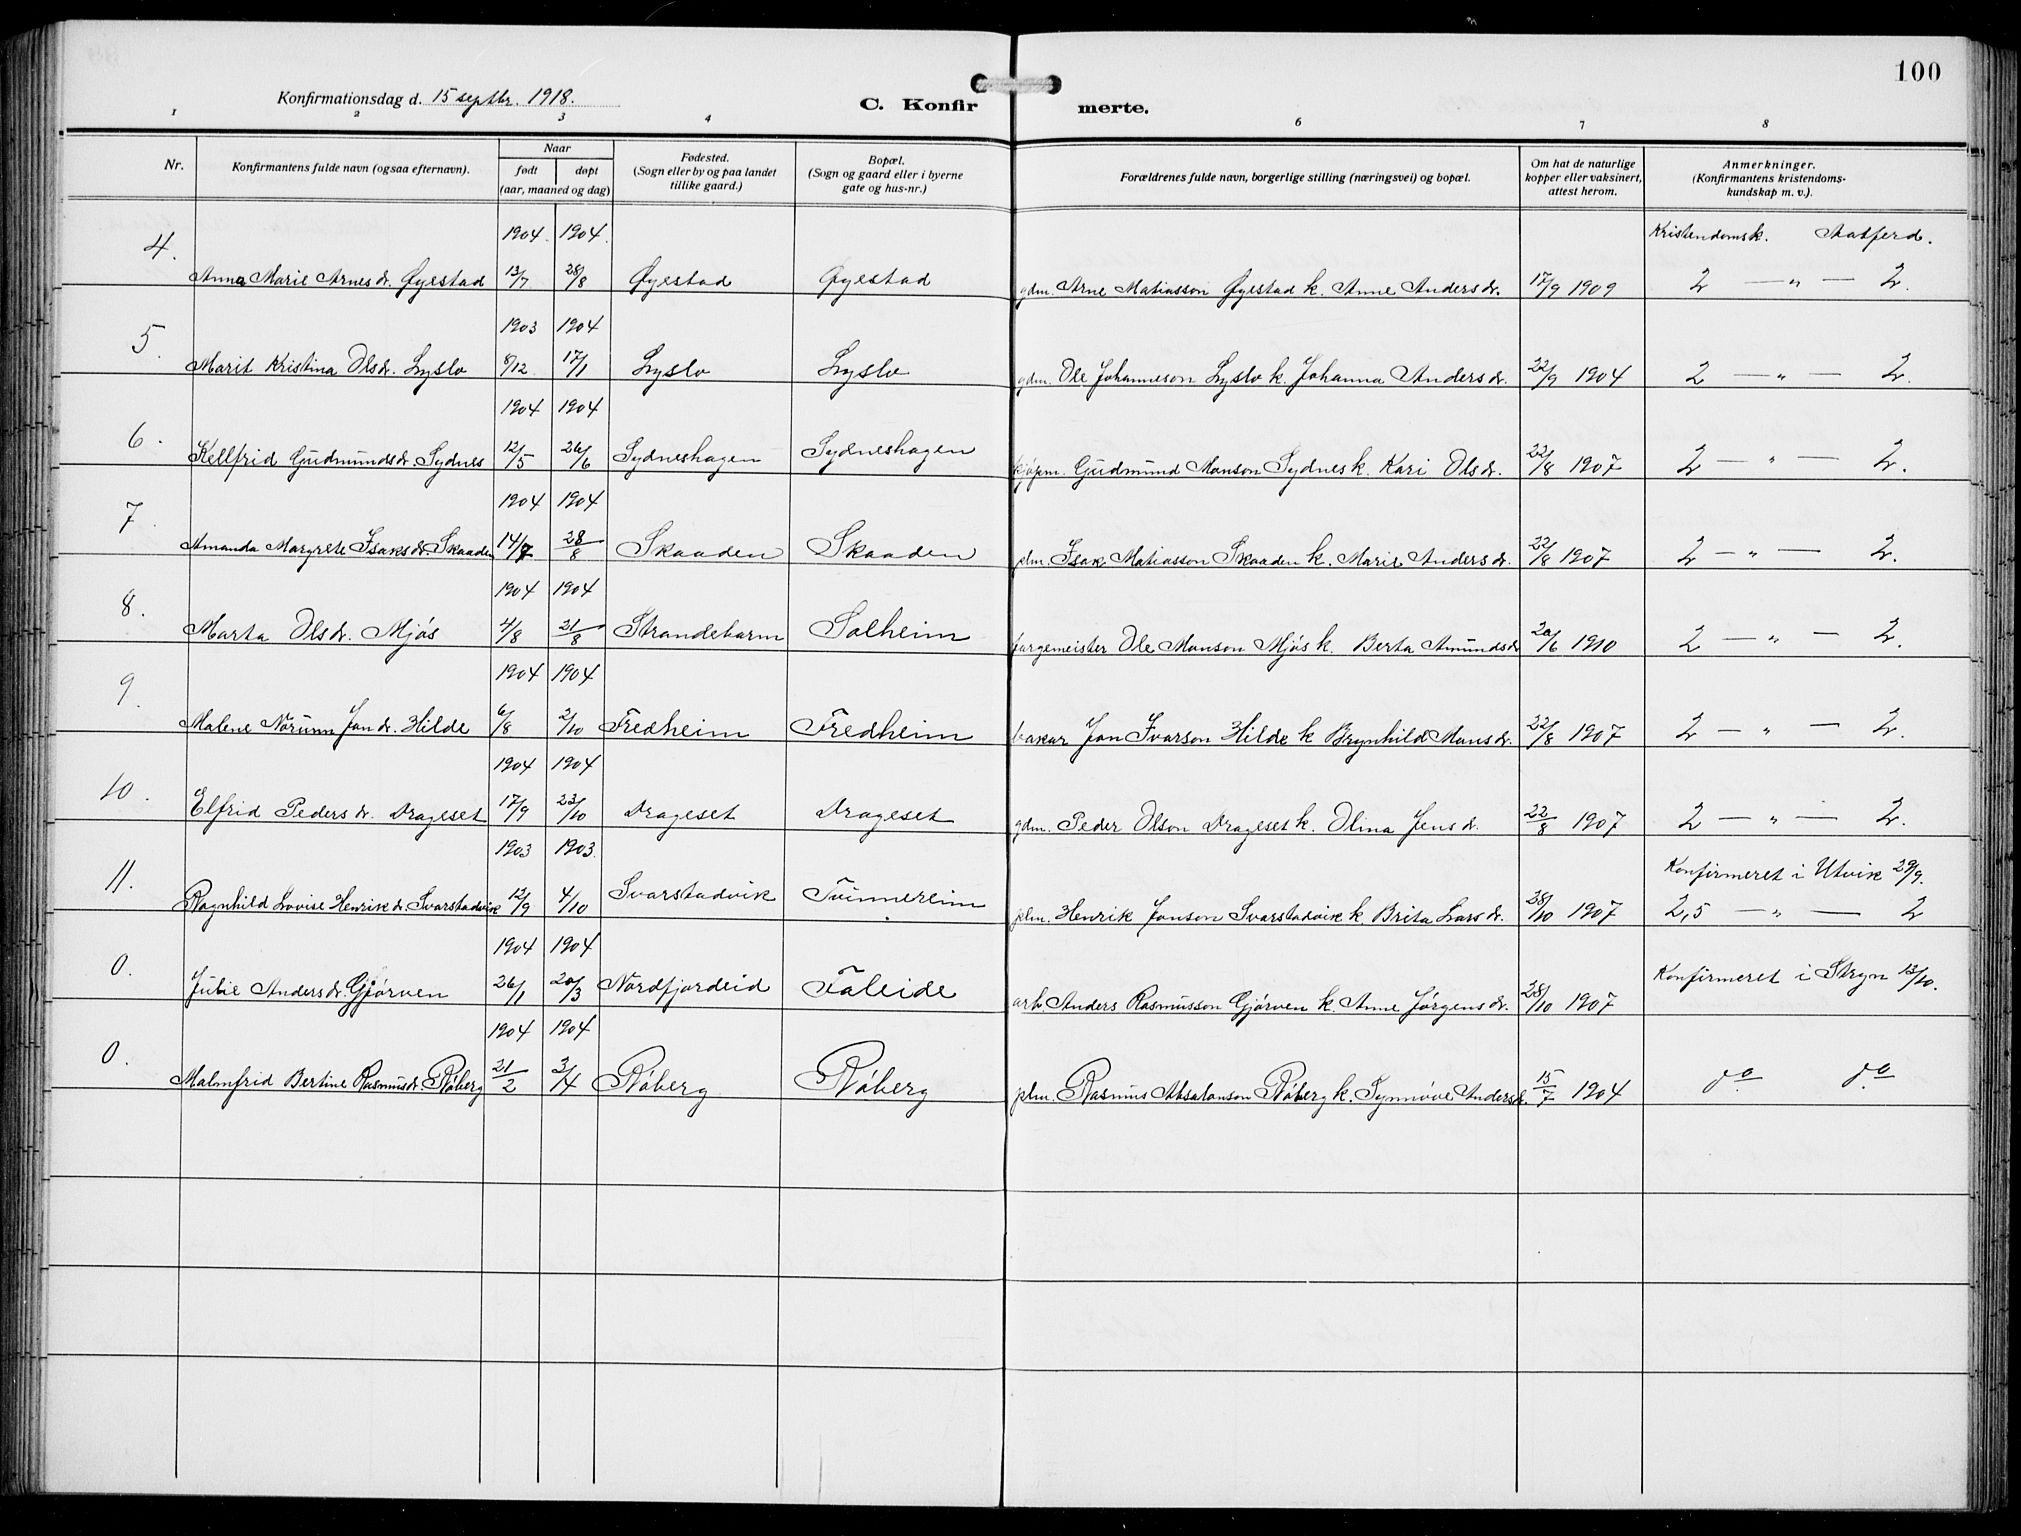 100
Konfirmationsdag d. 15 septbr. 1918.
C. Konfirmerte.
1 2 3 4 6 7 8
Nr. Konfirmantens fulde navn (ogsaa efternavn). Naar født døpt (aar, maaned og dag) Fødested. (Sogn eller by og paa landet tillike gaard.) Bopæl. (Sogn og gaard eller i byerne gate og hus-nr.) Forældrenes fulde navn, borgerlige stilling (næringsvei) og bopæl. Om hat de naturlige kopper eller vaksinert, attest herom. Anmerkninger. (Konfirmantens kristendomskundskap m. v.).
1904. 1904. Kristendomsk. Aatferd.
4. Anna Marie Arnesdr. Øyestad 13/7 28/8 Øyestad Øyestad gdm. Arne Matiasson Øyestad k. Anne Andersdr. 17/9 1909 2 — „ — 2.
1903 1904
5. Marit Kristina Olsdr. Lyslo 8/12 17/1 Lyslo Lyslo gdm. Ole Johanneson Lyslo k. Johanna Andersdr. 22/9 1904 2 — „ — 2.
1904 1904
6. Kellfrid Gudmundsdr. Sydnes 12/5 26/6 Sydneshagen Sydneshagen kjøpm. Gudmund Monson Sydnes k. Kari Olsdr. 22/8 1907 2 — „ — 2.
1904 1904
7. Amanda Margrete Isaksdr. Skaaden 14/7 28/8 Skaaden Skaaden plm. Isak Matiasson Skaaden k. Marie Andersdr. 22/8 1907 2 — „ — 2.
1904 1904
8. Marta Olsdr. Mjøs 4/8 21/8 Strandebarm Solheim fargemeister Ole Monson Mjøs k. Berta Amundsdr 20/6 1910 2 — „ — 2.
1904 1904
9. Malene Norunn Jondr. Hilde 6/8 2/10 Fredheim Fredheim bakar Jon Ivarson Hilde k Brynhild Monsdr. 22/8 1907 2 — „ — 2.
1904 1904
10. Elfrid Pedersdr. Drageset 17/9 23/10 Drageset Drageset gdm. Peder Olson Drageset k. Olina Jensdr. 22/8 1907 2 — „ — 2.
1903 1903. Konfirmeret i Utvik 29/9.
11. Ragnhild Lovise Henrikdr. Svarstadvik 12/9 4/10 Svarstadvik Tvinnereim plm. Henrik Jonson Svarstadvik k. Brita Larsdr. 28/10 1907 2,5 — „ — 2
1904 1904
0. Julie Andersdr. Gjørven 26/1 20/3 Nordfjordeid Faleide arb. Anders Rasmusson Gjørven k. Anne Jørgensdr. 28/10 1907 Konfirmeret i Stryn 13/10.
1904 1904
0. Malmfrid Bertine Rasmusdr. Røberg 21/2 3/4 Røberg Røberg plm. Rasmus Absalonson Røberg k. Synnøve Andersdr. 15/7 1904 do do